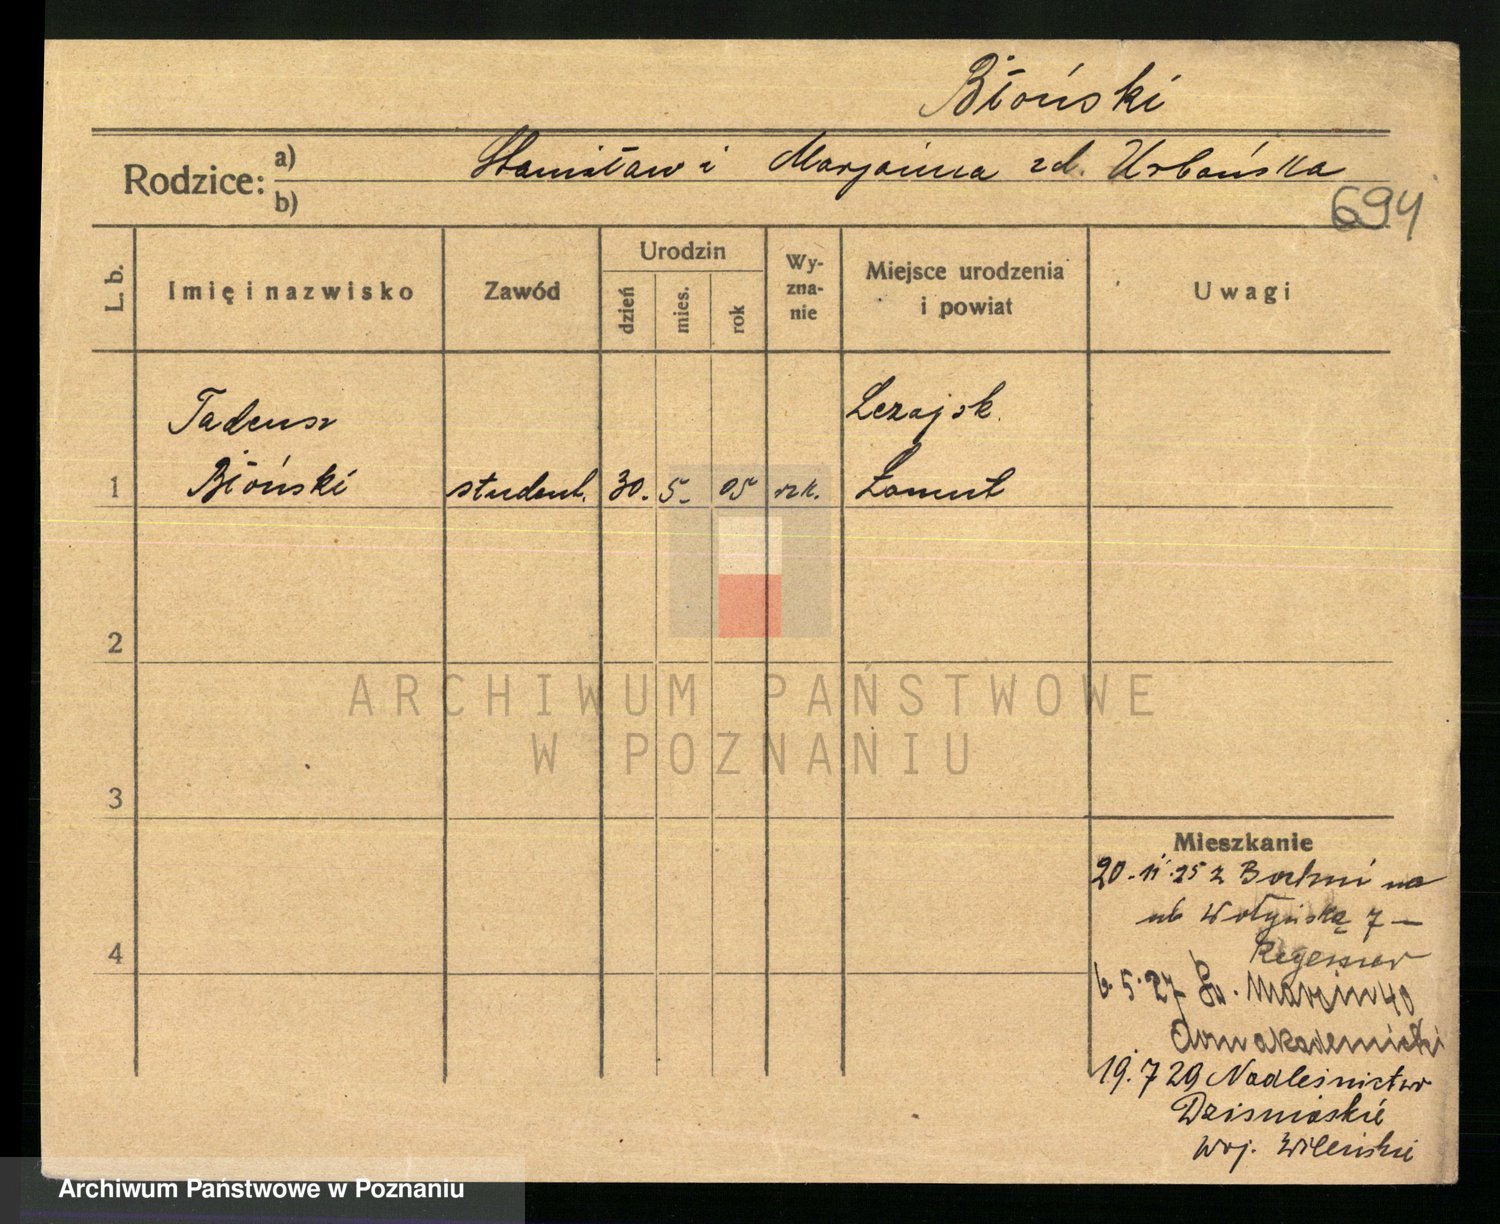 Błoński
Rodzice: a) Stanisław i Marjanna zd. Urbańska
b)
694
L. b.
Imię i nazwisko
Zawód
Urodzin
dzień
mies.
rok
Wy-
zna-
nie
Miejsce urodzenia
i powiat
Uwagi
Tadeusz
Leżajsk
1 Błoński student. 30. 5. 05 rzk. Łańcut
2
ARCHIWUM PAŃSTWOWE
W POZNANIU
3
Mieszkanie
20.11.25 z Bochni na
ul Wołyńską 7 –
4
6.5.27 Św. Marcin 40
Dom akademicki
19.7 29 Nadleśnictwo
Dziśnieńskie
woj. Wileńskie
Archiwum Państwowe w Poznaniu